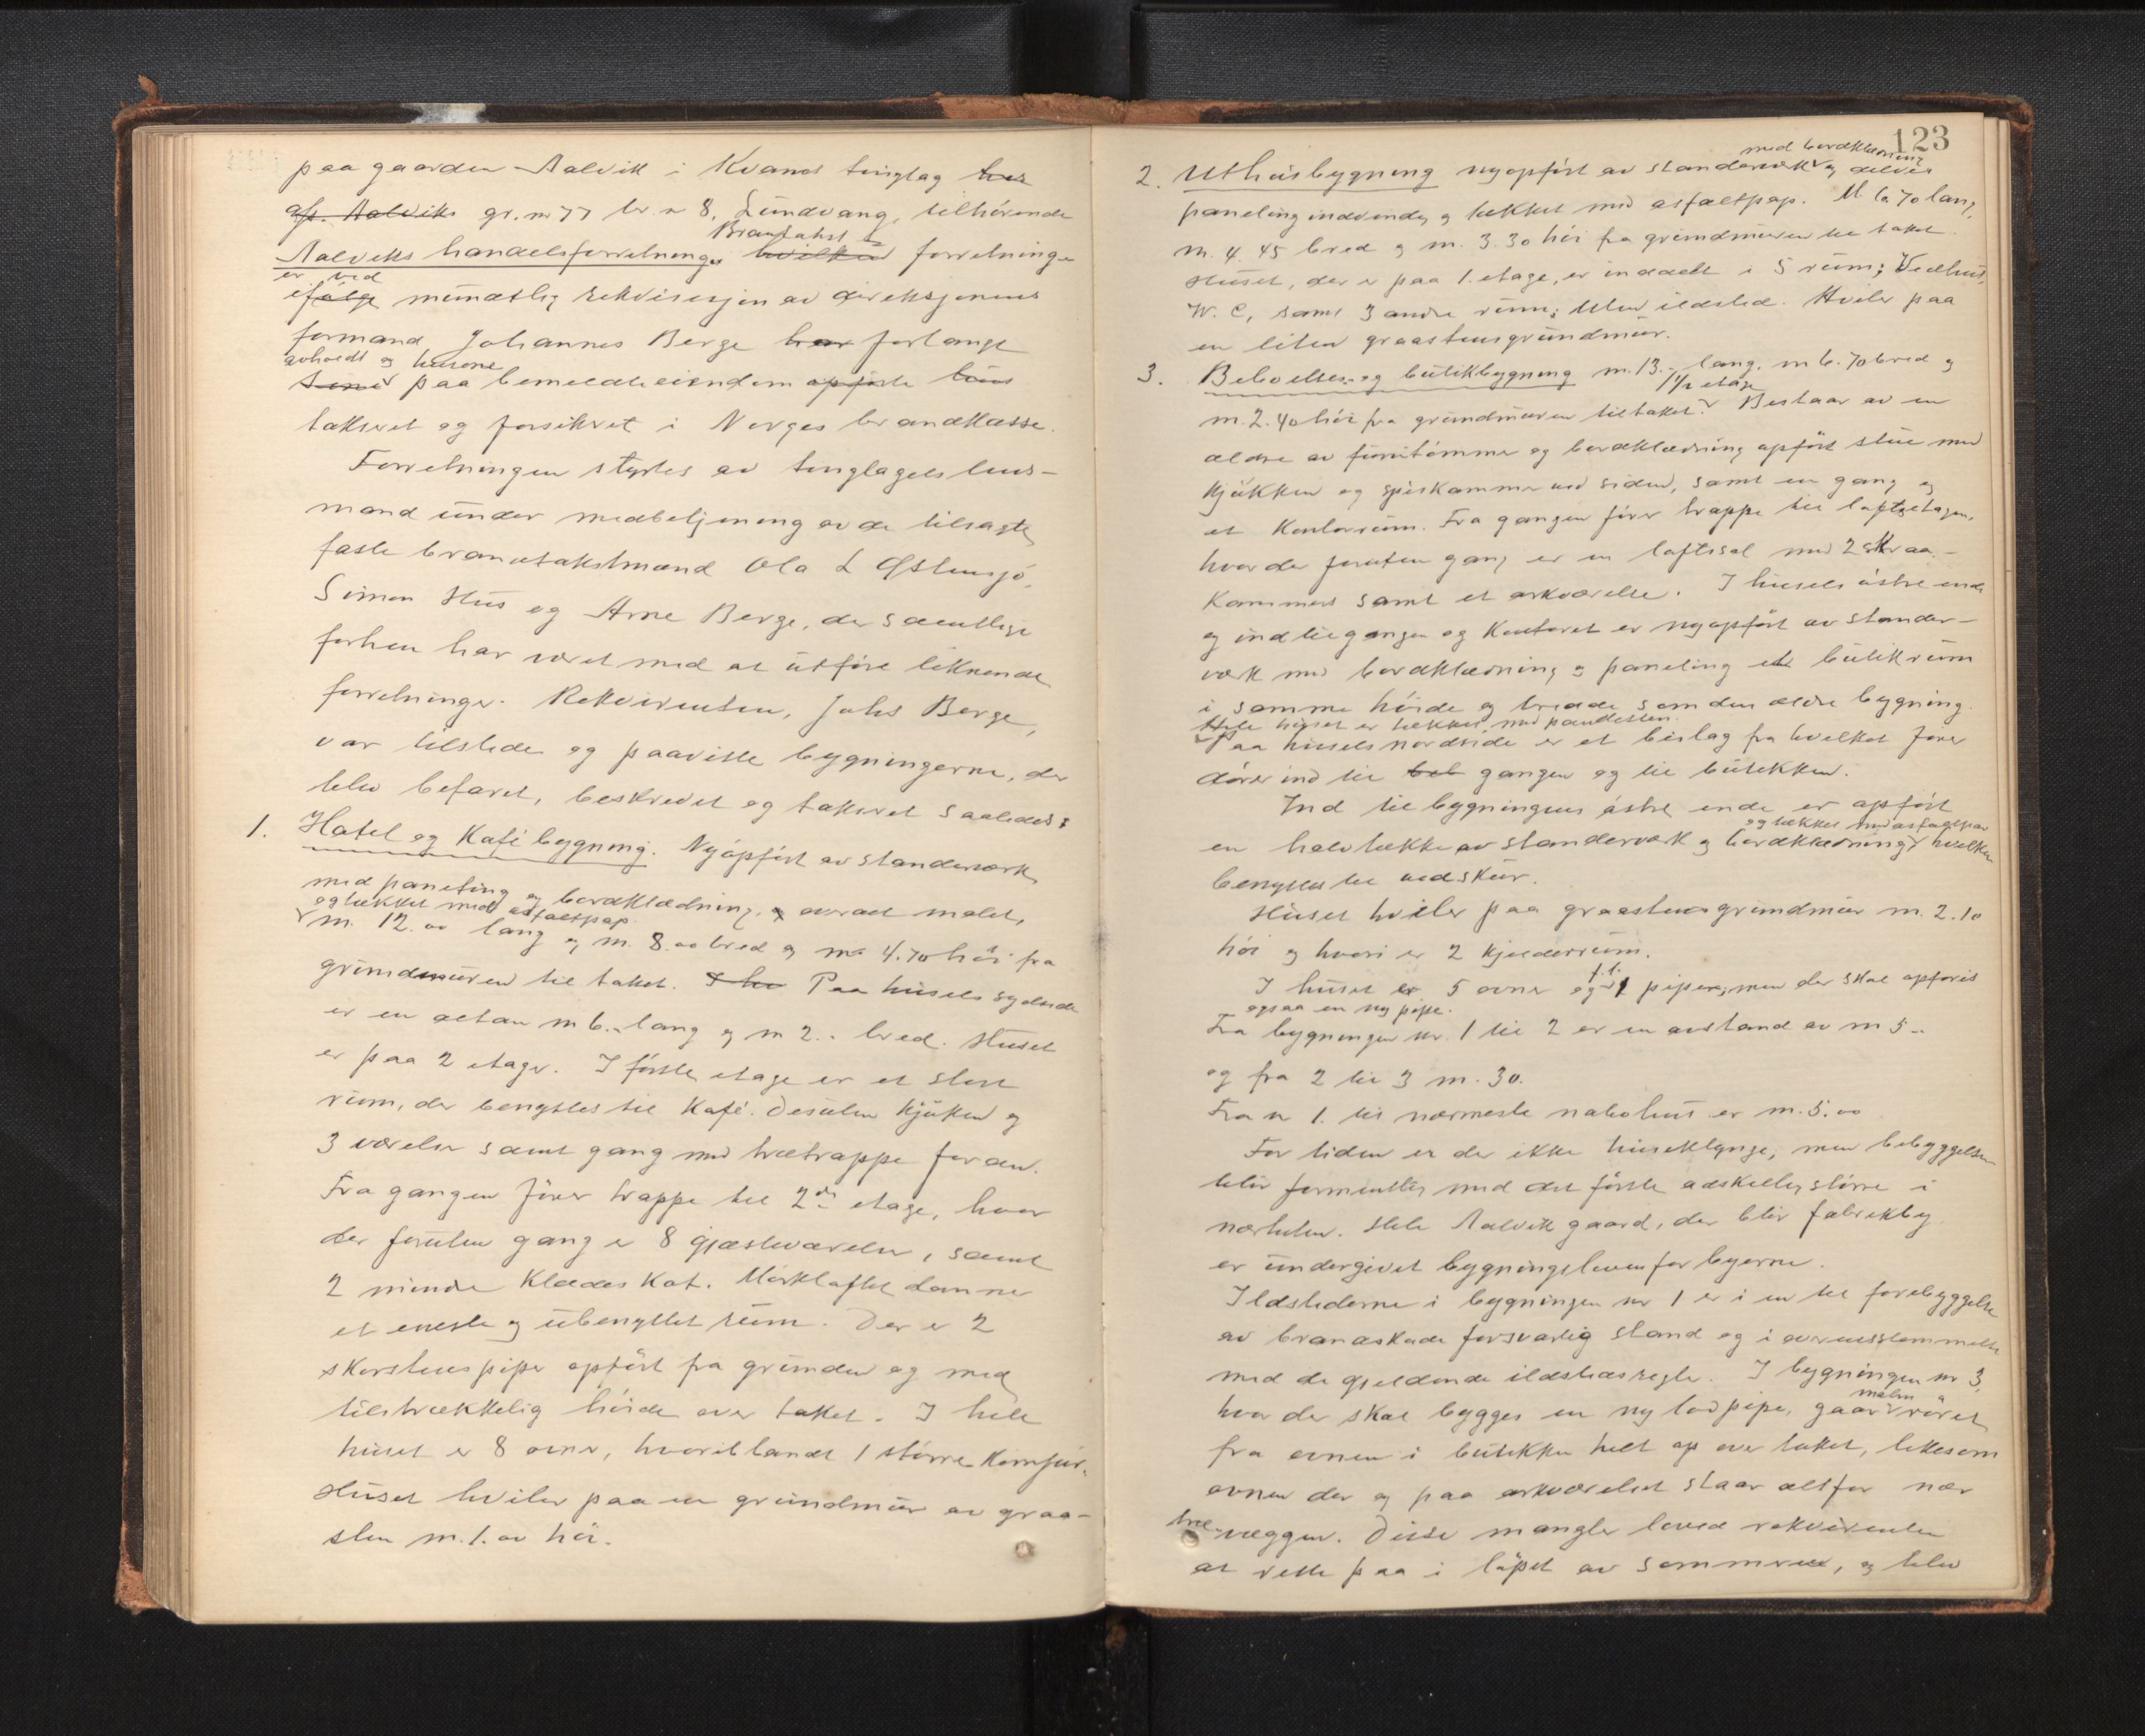 paa gaarden Aalvik i Kvams tinglag hos
gr. nr 77 br. n 8, Lundvang, tilhörende
Brantakst
Aalviks handelsforretninger hvilken forretninge
er ved
ifølge mundtlig rekvisisjon av direksjonens
formand Johannes Berge har forlangt
avholdt og husene
sine paa bemeldte eiendom opförte hus
taksert og forsikret i Norges brandkasse.
Forretningen styrtes av tinglagets lens-
mand under medbetjening av de tilsagte
faste branntakstmænd Ola L Östensjö,
Simon Hus og Arne Berge, der samtlige
forhen har været med at utföre liknende
forretninger. Rekvirenten, Johs Berge,
var tilstede og paaviste bygningerne, der
blev befaret, beskrevet og taksert saaledes:
1. Hotel og Kafé bygning. Nyopfört av standerverk
med paneling og bordklædning, og overalt malet,
og tækket med asfaltpap.
m. 12.00 lang og m. 8.00 bred og m. 4.70 höi fra
grundmuren til taket. I hu Paa husets sydside
er en altan m 6.- lang og m 2.- bred. Huset
er paa 2 etager. I förste etage er et stort
rum, der benyttes til Kafé. Desuten kjöken og
3 værelser samt gang med trætrappe foran.
Fra gangen förer trappe til 2den etage, hvor
der foruten gang er 8 gjæsteværelser, samt
2 mindre Klædeskot. Mörkloftet danner
et eneste og ubenyttet rum. Der er 2
skorstenspiper opfört fra grunden og med
tilstrækkelig höide over taket. I hele
huset er 8 ovner, hvoriblandt 1 större Komfur.
Huset hviler paa en grundmur av graa-
sten m. 1.00 höi.
123
med bordklædning
2. Uthusbygning nyopfört av standerverk og delvis
paneling indvendig og tækket med asfaltpap. M. 6.70 lang,
m. 4.45 bred og m. 3.30 höi fra grundmuren til taket.
Huset, der er paa 1. etage, er inddelt i 5 rum; Vedhus,
W. C, samt 3 andre rum; Uten ildsted. Hviler paa
en liten graastensgrundmur.
3. Beboelses- og butikbygning m. 13.- lang, m 6.70 bred og
1½ etage
m. 2.40 höi fra grundmuren til taket. Bestaar av en
ældre av furutömmer og bordklædning opfört stue med
Kjökken og spiskammer ved siden, samt en gang og
et Kontorrum. Fra gangen förer trappe til loftsetagen,
hvor der foruten gang er en loftssal med 2 skraa-
kammers samt et arkværelse. I husets östre ende
og ind til gangen og Kontoret er nyopfört av stander-
verk med bordklædning og paneling et butikrum
i samme höide og bredde som den ældre bygning.
Hele huset er tækket med pandesten.
Paa husets nordside er et bislag fra hvilket förer
dörer ind til bel gangen og til butikken.
Ind til bygningens östre ende er opfört
og tækket med asfaltpap
en halvtække av standerverk og bordklædning hvilken
benyttes til vedskur.
Huset hviler paa graastensgrundmur m. 2.10
höi og hvori er 2 kjelderrum.
f. t.
I huset er 5 ovner og 1 piper, men der skal opföres
ogsaa en ny pipe.
Fra bygningen nr. 1 til 2 er en avstand av m 5.-
og fra 2 til 3 m. 30.
Fra n 1. til nærmeste nabohus er m. 5.00
For tiden er der ikke huseklynge, men bebyggelsen
blir formentlig med det förste adskillig större i
nærheten. Hele Aalvik gaard, der blir fabrikby
er undergivet bygningsloven for byerne.
Ildstederne i bygningen nr 1 er i en til forebyggelse
av brandskade forsvarlig stand og i overensstemmelse
med de gjeldende ildstedsregler. I bygningen nr 3,
malm
hvor der skal bygges en ny lodpipe, gaar röret
fra ovnen i butikken helt op over taket, likesom
ovnen der og paa arkværelset staar altfor nær
træ-væggen. Disse mangler loved rekvirenten
at rette paa i löpet av sommeren, og blev